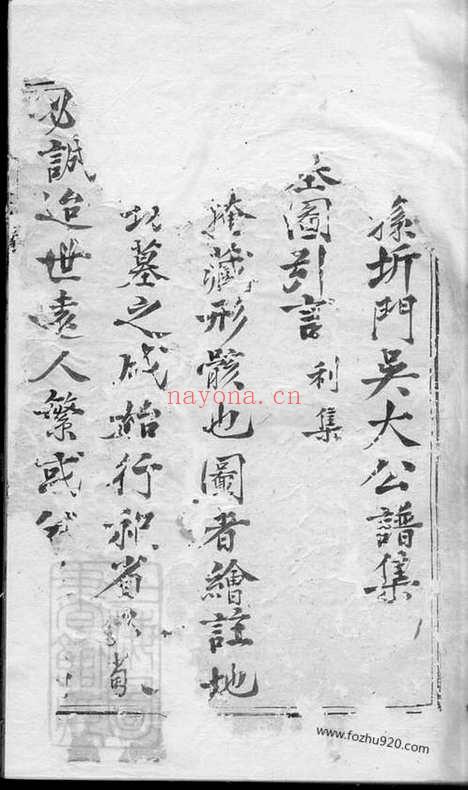 孫圻門吳大公譜集
墓圖引言 利集
掩藏形骸也圖者繪註地
墓之成始行祭省
必誠迨世遠人繁或
nayona.cn
www.fozhu920.com